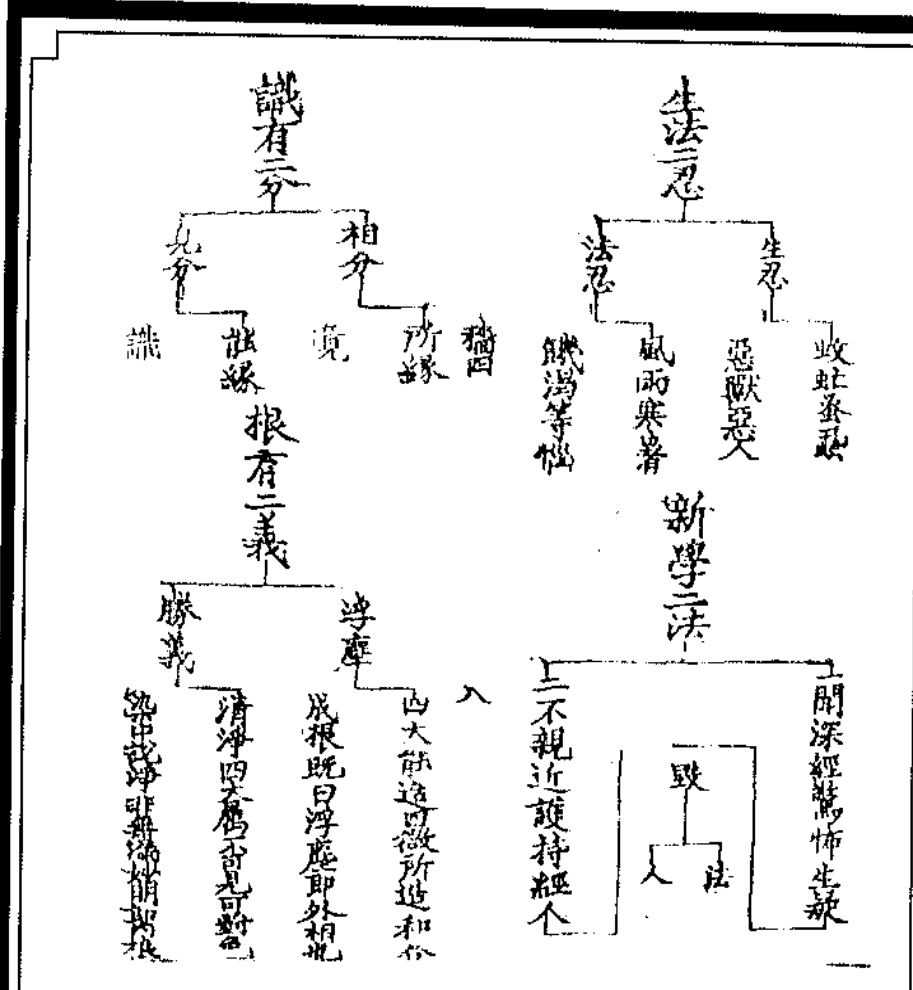 生法二忍
生忍
蚊虻蚤虱
惡獸惡人
法忍
風雨寒暑
飢渴等惱
新學二法
一聞深經驚怖生疑
毀
法
人
二不親近護持經人
識有二分
相分
所緣
境
見分
能緣
識
根有二義
浮塵
四大能造四微所造和合
成根既曰浮塵即外相也
勝義
清淨四大為
可見可對色
入